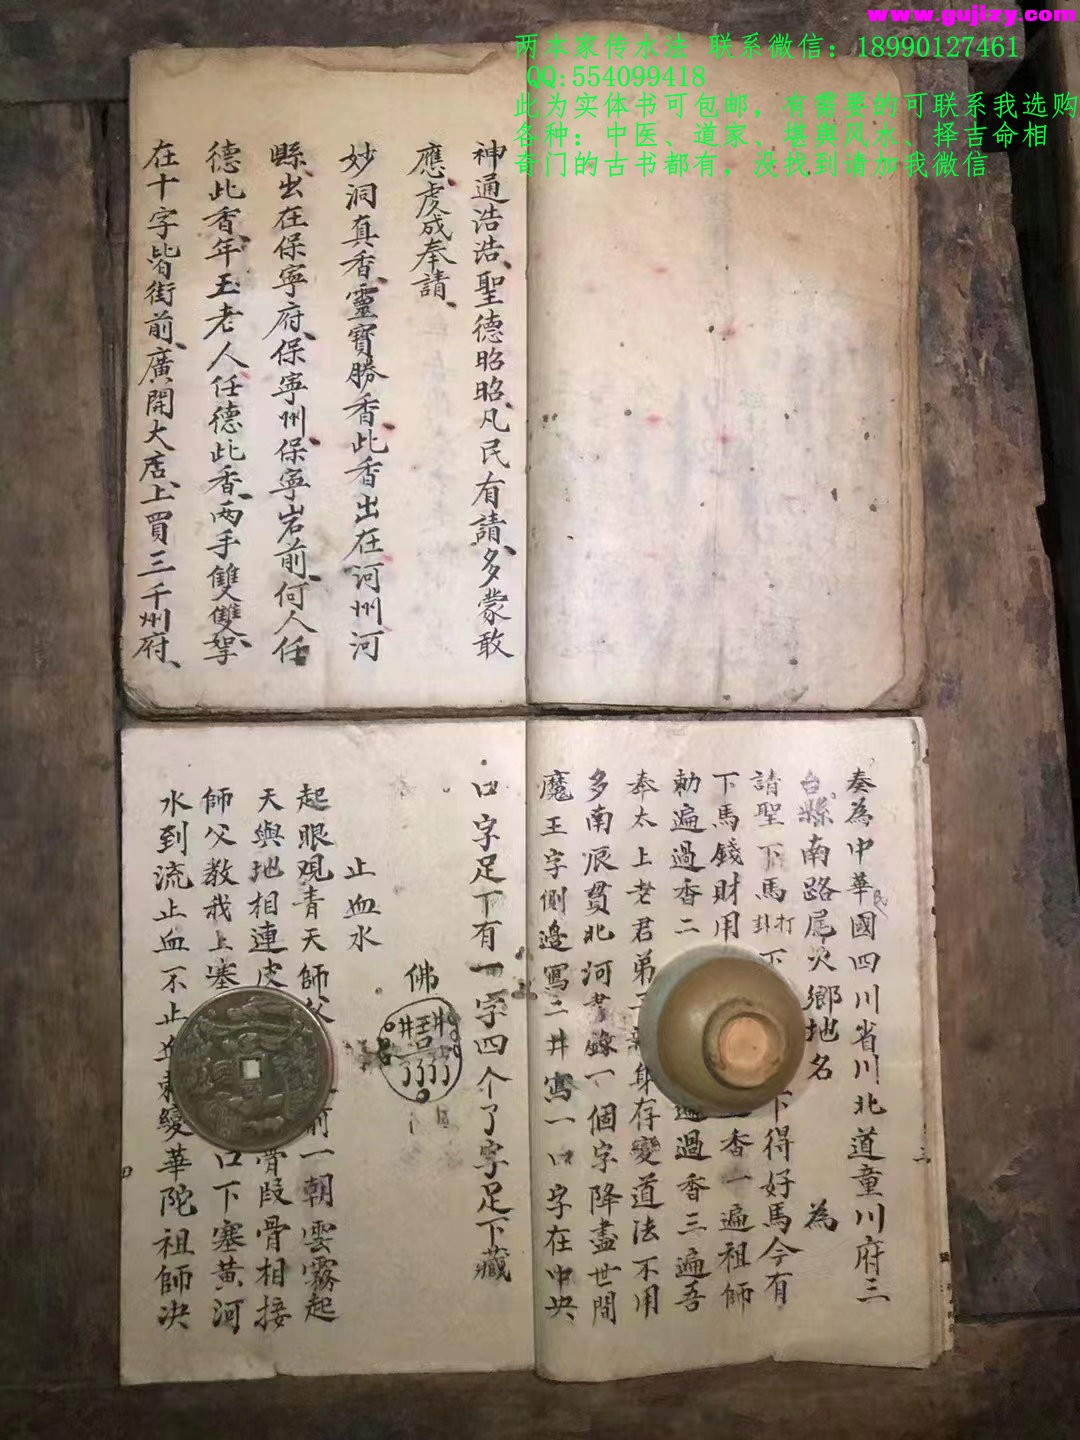 www.gujizy.com
两本家传水法 联系微信：18990127461
QQ:554099418
此为实体书可包邮，有需要的可联系我选购
各种：中医、道家、堪舆风水、择吉命相
奇门的古书都有，没找到请加我微信
神通浩浩聖德昭昭凡民有請多蒙敢
應虔成奉請
妙洞真香靈寶勝香此香出在河州河
縣出在保寧府保寧州保寧岩前何人任
德此香年王老人任德此香两手雙雙拏
在十字皆街前廣開大店上買三千州府
奏為中華民國四川省川北道童川府三
台縣南路尾 鄉地名 為
請聖下馬 打卦 下 下得好馬今有
下馬錢財用 香一遍祖師
勅遍過香二 遍過香三遍吾
奉太上老君弟 身存變道法不用
多南辰貫北河 一個字降盡世間
魔王字側邊寫二井寫一口字在中央
口字足下有一字四个了字足下藏
佛
井 井
了了了了
止血水
起眼观青天師父 前一朝雲霧起
天與地相連皮 骨段骨相接
師父教我上塞 口下塞黃河
水到流止血不止 華陀祖師决